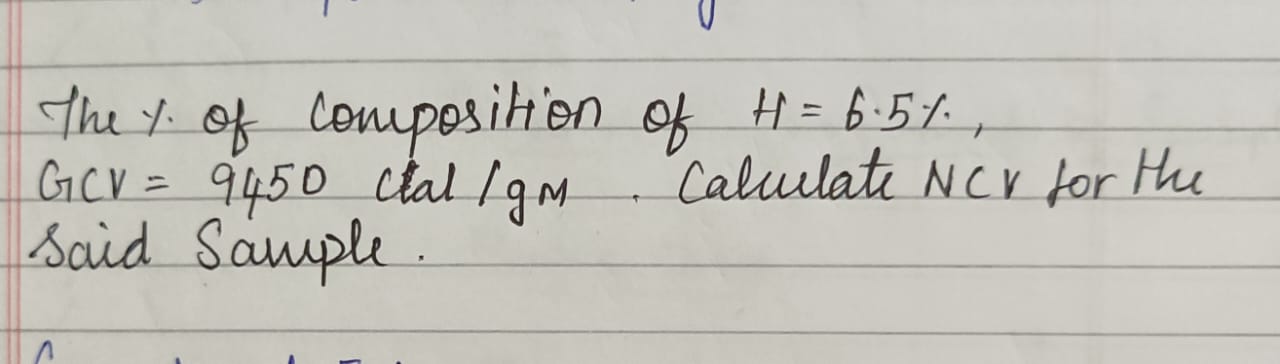 The % of Composition of H = 6.5%,
GCV = 9450 Cal/gm. Calculate NCV for the
Said Sample.